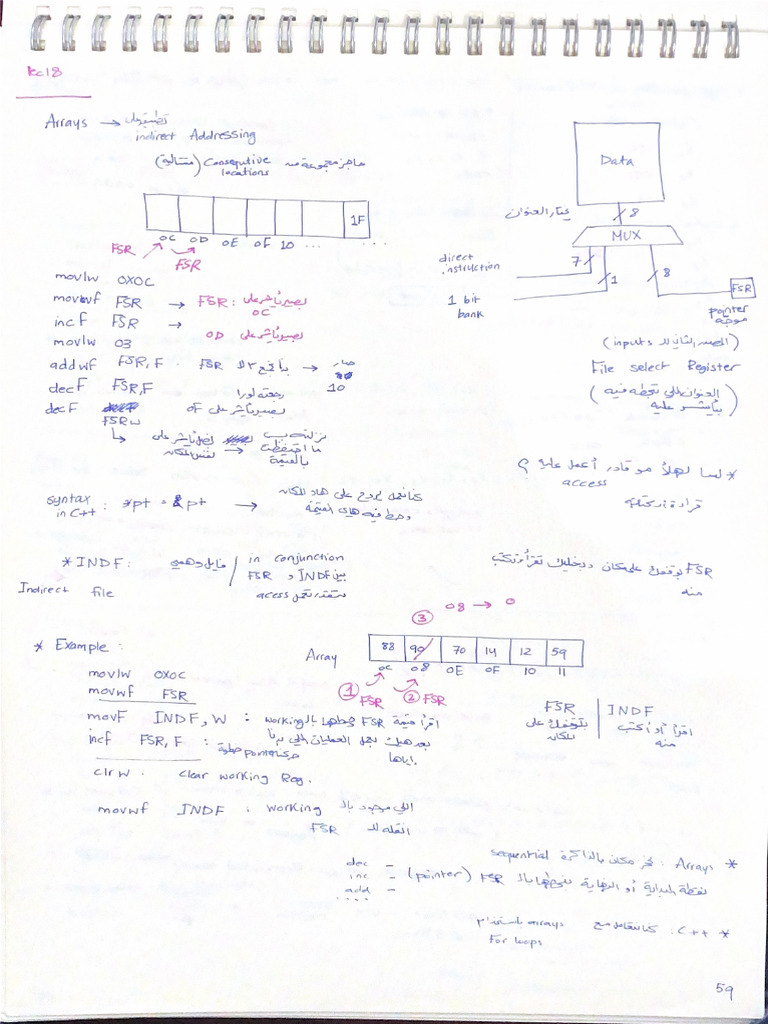 lec18
Arrays → تطبيق على
indirect Addressing
حاجز مجموعة من Consequtive (متتالية)
locations
1F
0C 0D 0E 0F 10 ... ...
FSR
FSR
Data
8
يختار العنوان
MUX
direct
instruction
7
1
8
1 bit
bank
FSR
pointer
(المصدر الثاني للـ inputs)
File select Register
(العنوان اللي نحطه فيه
بيأشر عليه)
movlw 0X0C
movwf FSR → FSR: بصير يأشر على
0C
incf FSR → بصير يأشر على 0D
movlw 03
addwf FSR,F . FSR بجمع 3 لـ → صار
10
decf FSR,F رجعته لورا
decf FSRW بصير يأشر على 0F
نفس المكان
بالقيمة
* لسا لهلأ مو قادر أعمل عليه
access
قراءة أو كتابة
syntax
in C++ : *pt = &pt → هاد المكان
وحط فيه هاي القيمة
* INDF: فايل وهمي / in conjunction
بين INDF و FSR
Indirect file
access
FSR بوقفك على مكان وبخليك تقرأ وتكتب
منه
③ 08 → 0
* Example :
Array
88 90 70 14 12 59
0C 08 0E 0F 10 11
① FSR ② FSR
movlw 0X0C
movwf FSR
movf INDF, W : اقرأ قيمة FSR وحطها بالـ working
incf FSR, F : بعد هيك بعمل العمليات اللي بدنا
اياها. حرك pointer خطوة
FSR | INDF
بتوقفك على | اقرأ أو اكتب
المكان | منه
clrw : clear working Reg.
movwf INDF : اللي موجود بالـ working
انقله للـ FSR
* Arrays : مكان بالذاكرة sequential
نقطة البداية أو النهاية بالـ FSR (pointer)
- dec
- inc
- add
....
* C++ : كنا نتعامل مع arrays باستخدام
For loops
59